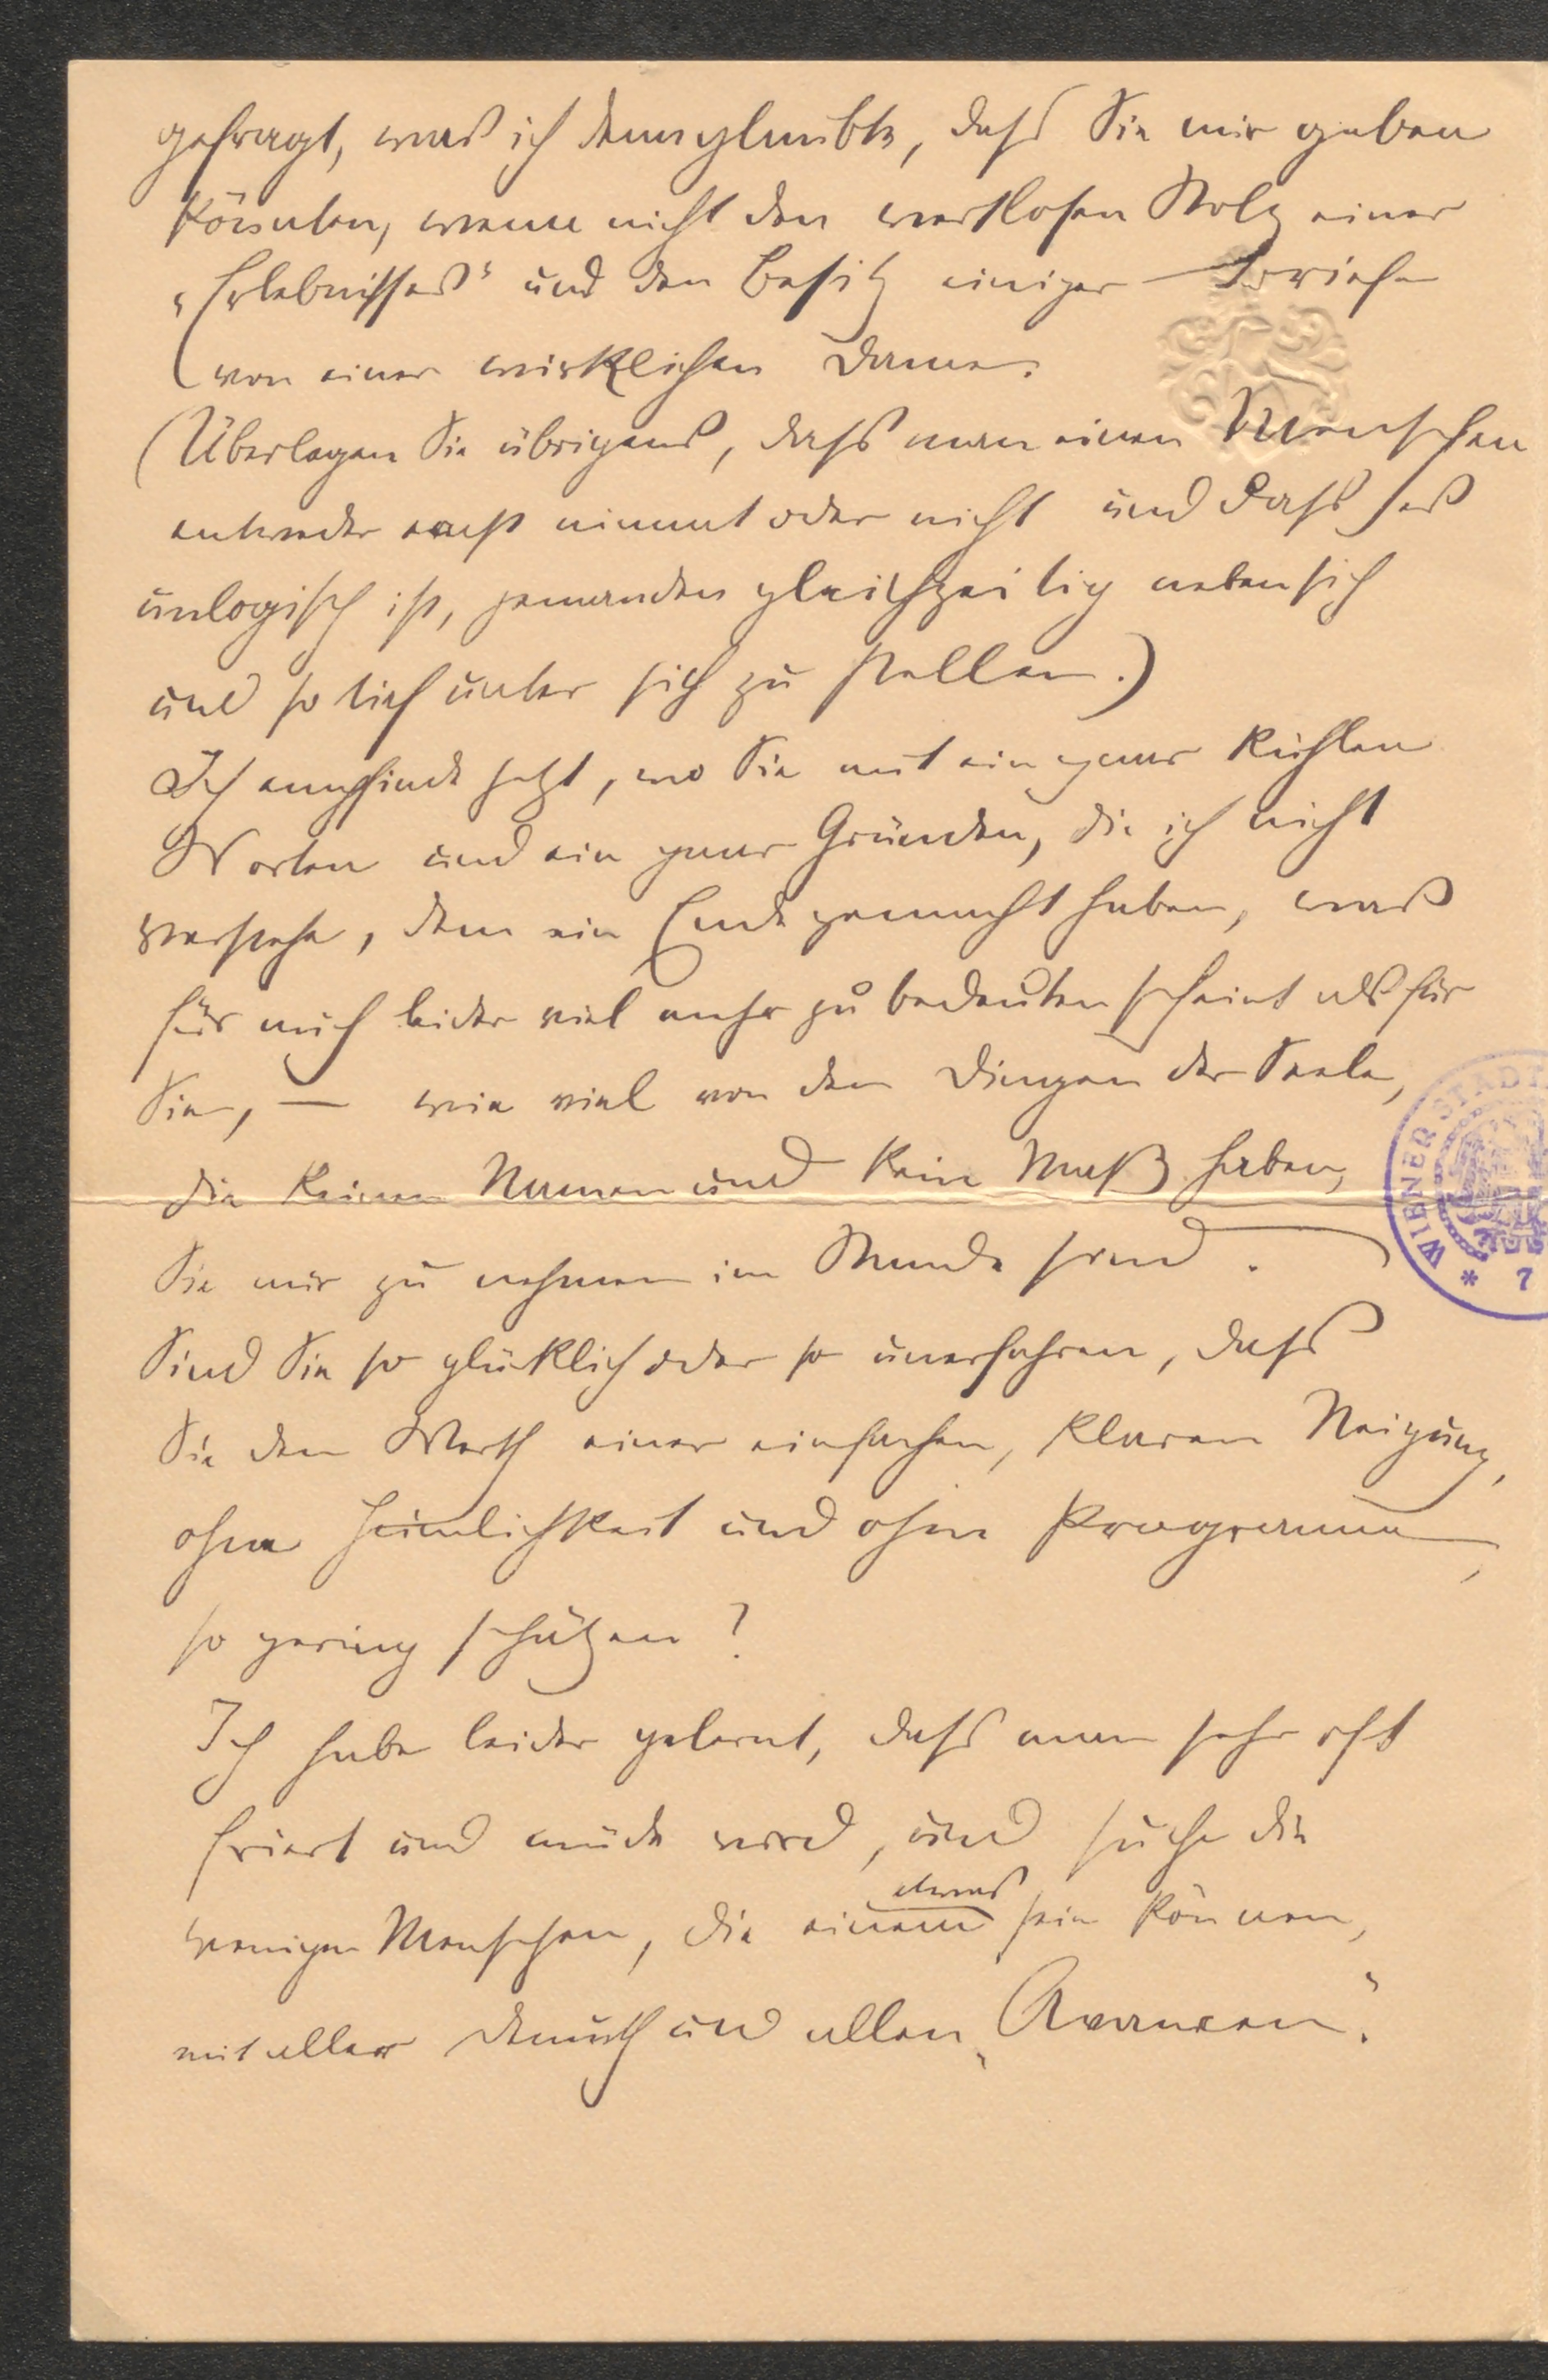 gefragt, was ich denn glaubte, dass Sie mir geben
könnten, wenn nicht den wertlosen Stolz eines
„Erlebnisses“ und den Besitz einiger Briefe
von einer wirklichen Dame.
(Überlegen Sie übrigens, dass man einen Menschen
entweder ernst nimmt oder nicht und dass es
unlogisch ist, jemanden gleichzeitig neben sich
und so tief unter sich zu stellen.)
Ich empfinde jetzt, wo Sie mit ein paar kühlen
Worten und ein paar Gründen, die ich nicht
verstehe, dem ein Ende gemacht haben, was
für mich leider viel mehr zu bedeuten scheint als für
Sie, — wie viel von den Dingen der Seele,
die keinen Namen und kein Maß haben,
Sie mir zu nehmen im Stande sind.
Sind Sie so glücklich oder so unerfahren, dass
Sie den Werth einer einfachen, klaren Neigung,
ohne Heimlichkeit und ohne Programm,
so gering schätzen?
Ich habe leider gelernt, dass man sehr oft
friert und müde wird, und suche die
etwas
wenigen Menschen, die einem sein können,
mit aller Demuth und allen „Avancen“.
WIENER STADT
* 7